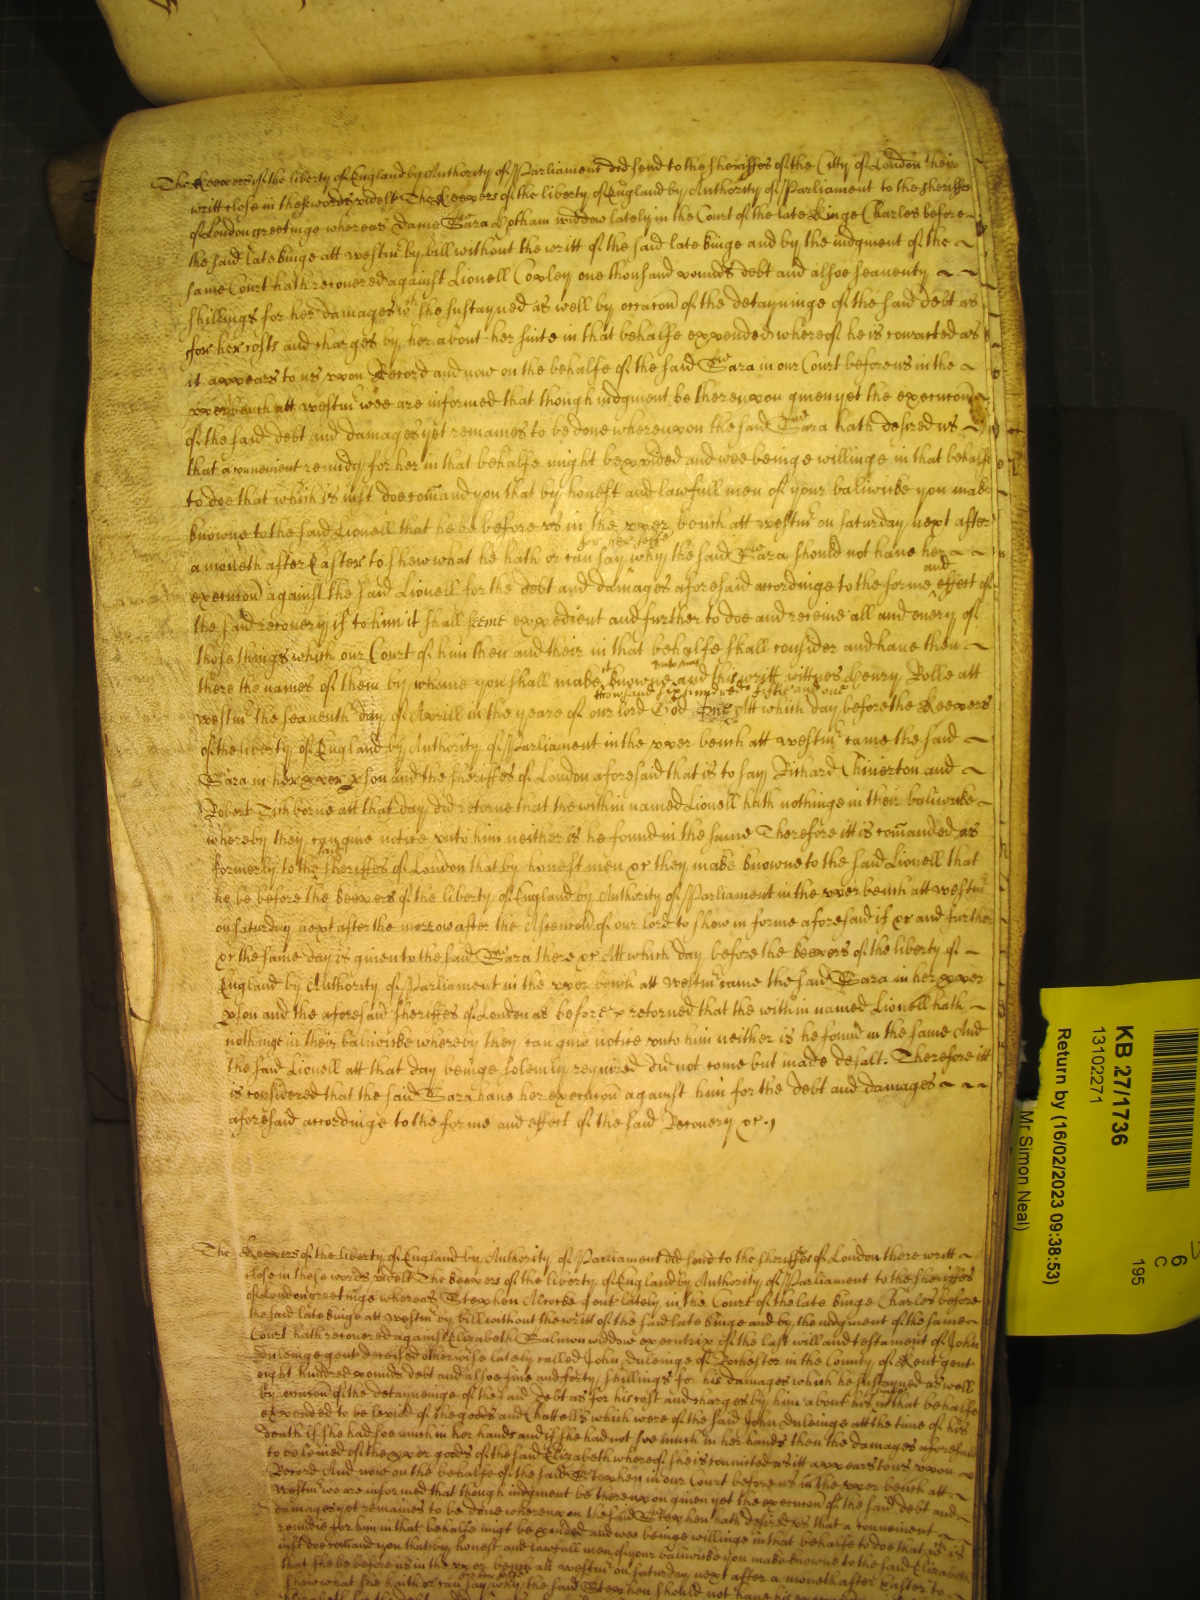 The Keepers of the liberty of England by Authority of Parliament did send to the sheriffes of the Citty of London their
writt close in these words videlt The Keepers of the liberty of England by Authority of Parliament to the sheriffes
of London greetinge whereas Dame Sara Hotham widdow lately in the Court of the late Kinge Charles before
the said late kinge att westmr by bill without the writt of the said late kinge and by the iudgment of the
same Court hath recovered against Lionell Copley one thousand pounds debt and alsoe seaventy
shillings for her damages wch she sustayned as well by occacon of the detayninge of the said debt as
for her costs and charges by her about her suite in that behalfe expended whereof he is convicted as
it appeares to us upon Record and now on the behalfe of the said Sara in our Court before us in the
upper bench att westmr wee are informed that though iudgment be thereupon given yet the execucon
of the said debt and damages yet remaines to be done whereupon the said Sara hath desired us
that a convenient remidy for her in that behalfe might be pvided and wee beinge willinge in that behalfe
to doe that which is iust doe comand you that by honest and lawfull men of your baliwicke you make
knowne to the said Lionell that he be before us in the upper bench att westmr on saturday next after
a moneth after Easter to shew what he hath or can say for himselfe why the said Sara should not have her
execucon against the said Lionell for the debt and damages aforesaid accordinge to the forme and effect of
the said recovery if to him it shall seeme expedient and further to doe and receive all and every of
those things which our Court of him then and their in that behalfe shall consider and have then
there the names of them by whome you shall make it knowne unto him and this writt wittnes Henry Rolle att
westmr the seaventh day of Aprill in the yeare of our lord God one thowsand six hundred fiftie and one Att which day before the Keepers
of the liberty of England by Authority of Parliament in the upper bench att westmr came the said
Sara in her pper pson and the sheriffes of London aforesaid that is to say Richard Chiverton and
Robert Tichborne att that day did retorne that the within named Lionell hath nothinge in their baliwicke
whereby they can give notice unto him neither is he found in the same Therefore itt is comanded as
formerly to the said sheriffes of London that by honest men &c they make knowne to the said Lionell that
he be before the keepers of the liberty of England by Authority of Parliament in the upper bench att westmr
on saturday next after the morrow after the Ascencon of our lord to shew in forme aforesaid if &c and further
&c the same day is given to the said Sara there &c Att which day before the keepers of the liberty of
England by Authority of Parliament in the upper bench att westmr came the said Sara in her pper
pson and the aforesaid sheriffes of London as before &c retorned that the within named Lionell hath
nothinge in their baliwicke whereby they can give notice unto him neither is he found in the same And
the said Lionell att that day beinge solemly required did not come but made defalt. Therefore itt
is considered that the said Sara have her execucon against him for the debt and damages
aforesaid accordinge to the forme and effect of the said Recovery &c.
The Keepers of the liberty of England by Authority of Parliament did send to the sheriffes of London there writt
close in these words videlt The keepers of the liberty of England by Authority of Parliament to the sheriffes
of London greetinge whereas Stephen Alcocke gent lately in the Court of the late kinge Charles before
the said late kinge att westmr by bill without the writt of the said late kinge and by the iudgment of the same
Court hath recovered against Elizabeth Balmon widdow executrix of the last will and testament of John
Dulenge gent deceised otherwise lately called John Dulenge of Rochester in the County of Kent gent
eight hundred pounds debt and alsoe five and forty shillings for his damages which he sustayned as well
by occacon of the detayneinge of the said debt as for his cost and charges by him about his suite in that behalfe
expended to be levied of the goods and Chattells which were of the said John Duleinge att the time of his
death if she had soe much in her hands and if she had not soe much in her hands then the damages aforesaid
to be levied of the pper goods of the said Elizabeth whereof she is convicted as itt appeares to us upon
Record And now on the behalfe of the said Stephen in our Court before us in the upper bench att
westmr we are informed that though iudgment be thereupon given yet the execucon of the said debt and
damages yet remaines to be done whereupon the said Stephen hath desired us that a convenient
remidie for him in that behalfe migt be pvided and wee beinge willinge in that behalfe to doe that wch is
iust doe comand you that by honest and lawfull men of your baliwicke you make knowne to the said Elizabeth
that she be before us in the upper bench att westmr on saturday next after a moneth after Easter to
shew what she hath or can say why the said Stephen should not have his execucon
KB 27/1736
13102271
Return by (16/02/2023 09:38:53)
Mr Simon Neal)
6
C
195